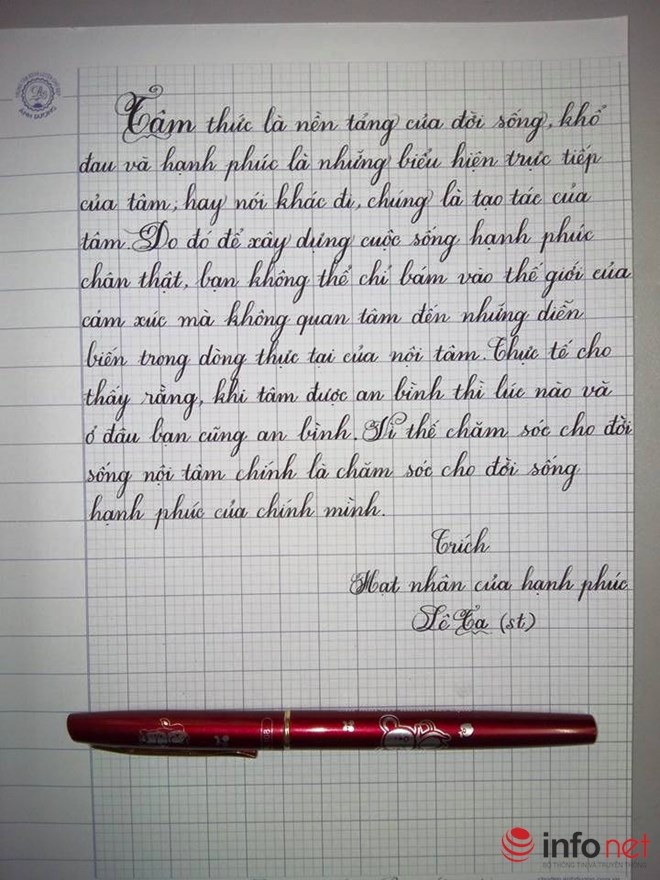 Tâm thức là nền tảng của đời sống, khổ
đau và hạnh phúc là những biểu hiện trực tiếp
của tâm, hay nói khác đi, chúng là tạo tác của
tâm. Do đó để xây dựng cuộc sống hạnh phúc
chân thật, bạn không thể chỉ bám vào thế giới của
cảm xúc mà không quan tâm đến những diễn
biến trong dòng thực tại của nội tâm. Thực tế cho
thấy rằng, khi tâm được an bình thì lúc nào và
ở đâu bạn cũng an bình. Vì thế chăm sóc cho đời
sống nội tâm chính là chăm sóc cho đời sống
hạnh phúc của chính mình.
Trích
Hạt nhân của hạnh phúc
(st)
infonet
BỘ THÔNG TIN & TRUYỀN THÔNG